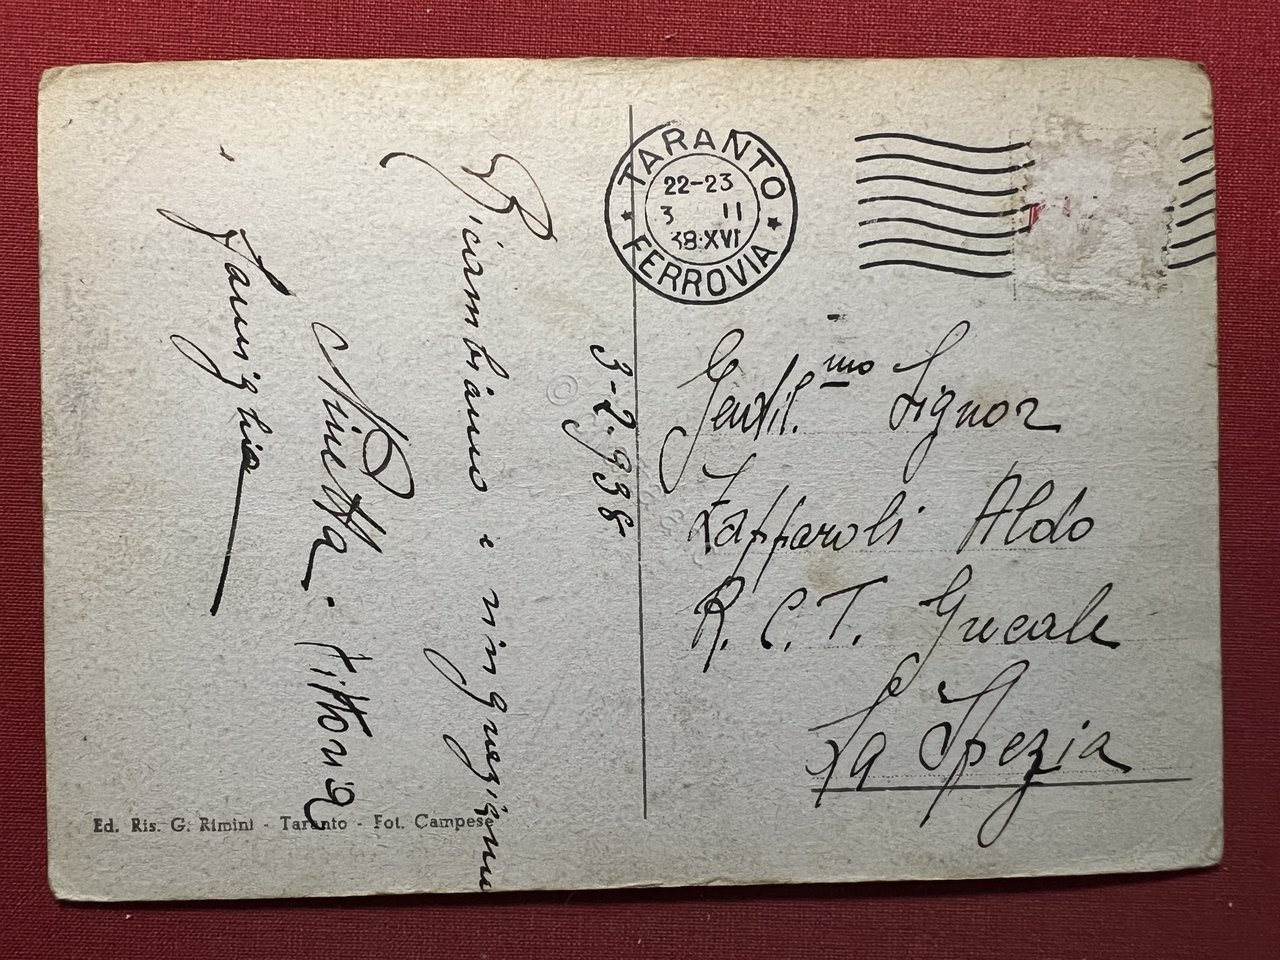 TARANTO
22-23
3 II
38·XVI
FERROVIA
3-2-938
Ricambiamo e ringraziamo
Ninetta - Vittoria
famiglia
Gentil.mo Signor
Zapparoli Aldo
R. C. T.
La Spezia
Ed. Ris. G. Rimini - Taranto - Fot. Campese